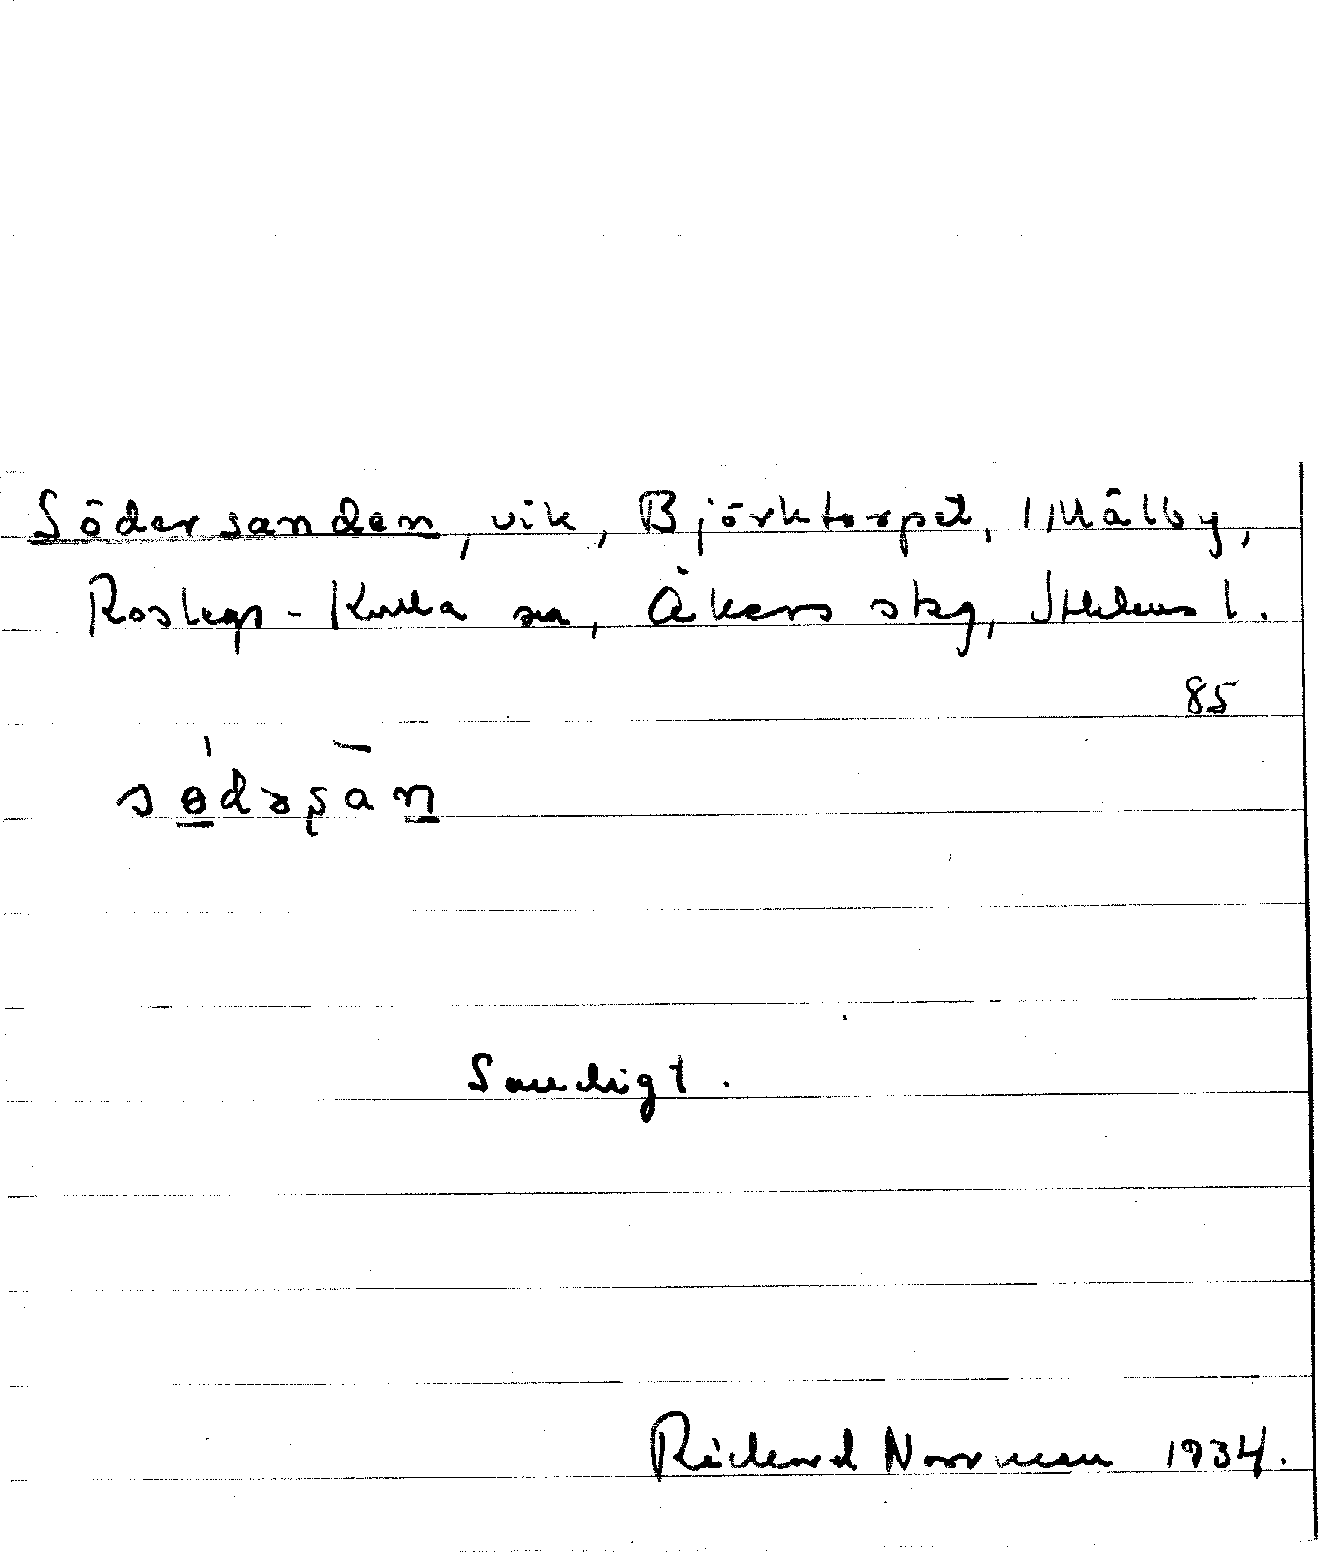 Södersanden, vik, Björktorpet, 1 Målby,
Roslags-Kulla sn, Åkers skg, Sthlms l.
85
sɵdəʂan
Sandigt.
Richard Norrman 1934.